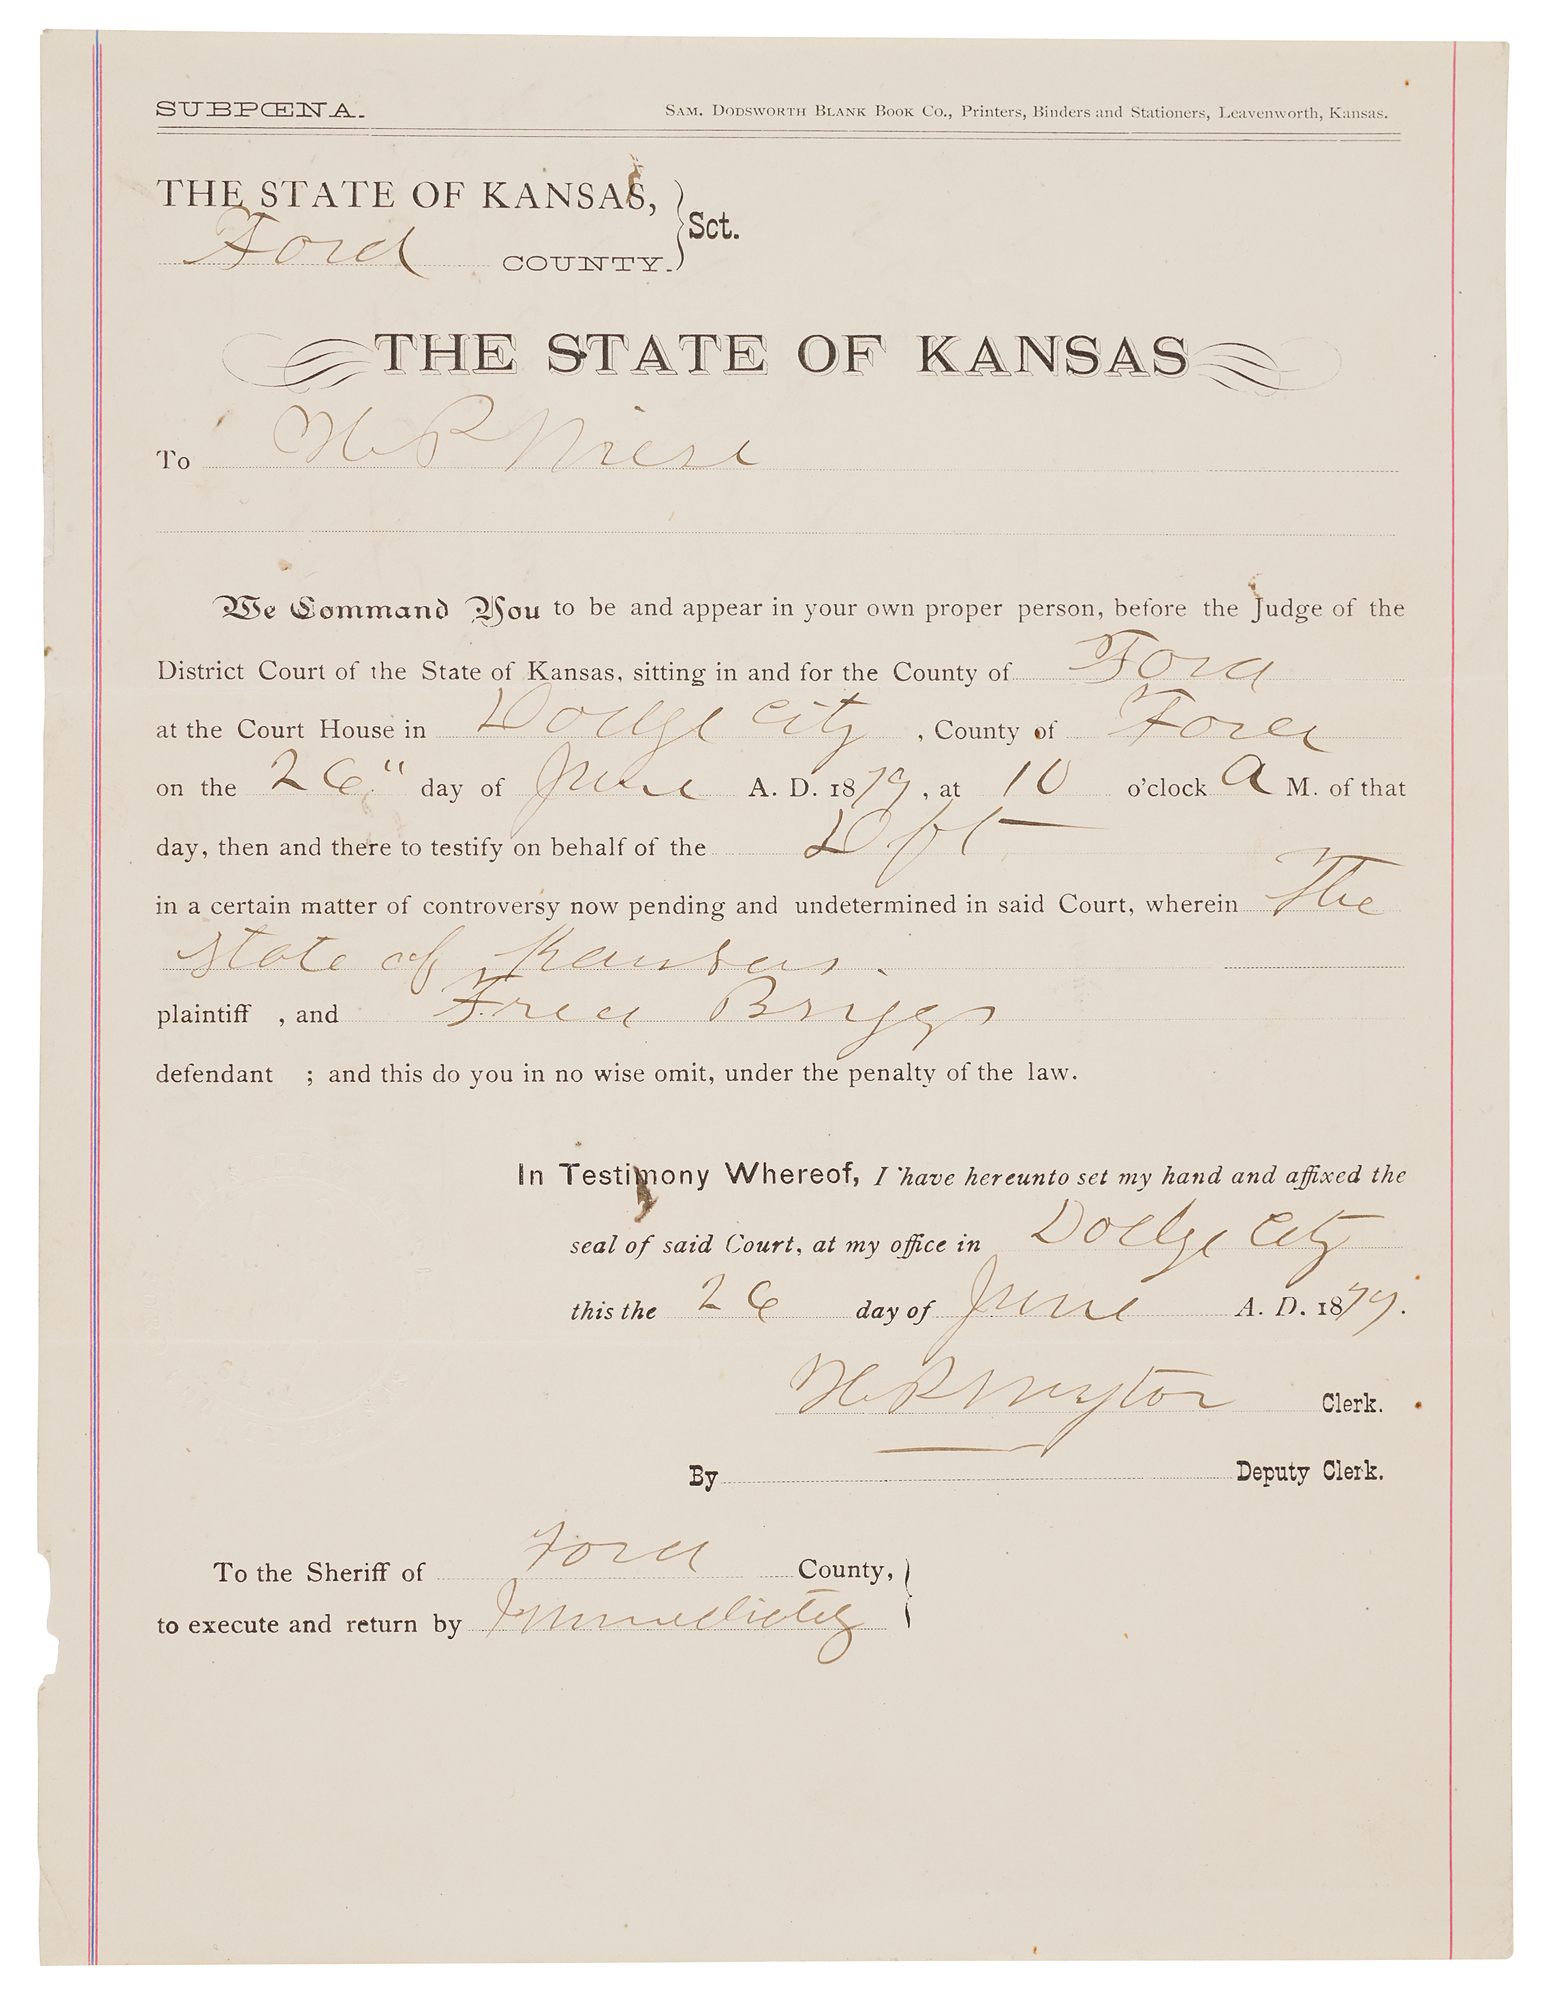 SUBPŒNA.
SAM. DODSWORTH BLANK BOOK CO., Printers, Binders and Stationers, Leavenworth, Kansas.
THE STATE OF KANSAS,
Ford COUNTY. } Sct.
THE STATE OF KANSAS
To H P
We Command You to be and appear in your own proper person, before the Judge of the
District Court of the State of Kansas, sitting in and for the County of Ford
at the Court House in Dodge City, County of Ford
on the 26" day of June A. D. 1879, at 10 o'clock A M. of that
day, then and there to testify on behalf of the Dft
in a certain matter of controversy now pending and undetermined in said Court, wherein The
State of Kansas.
plaintiff , and Fred Briggs
defendant ; and this do you in no wise omit, under the penalty of the law.
In Testimony Whereof, I have hereunto set my hand and affixed the
seal of said Court, at my office in Dodge City
this the 26 day of June A. D. 1879.
H P Myton Clerk.
By Deputy Clerk.
To the Sheriff of Ford County, }
to execute and return by Immediately